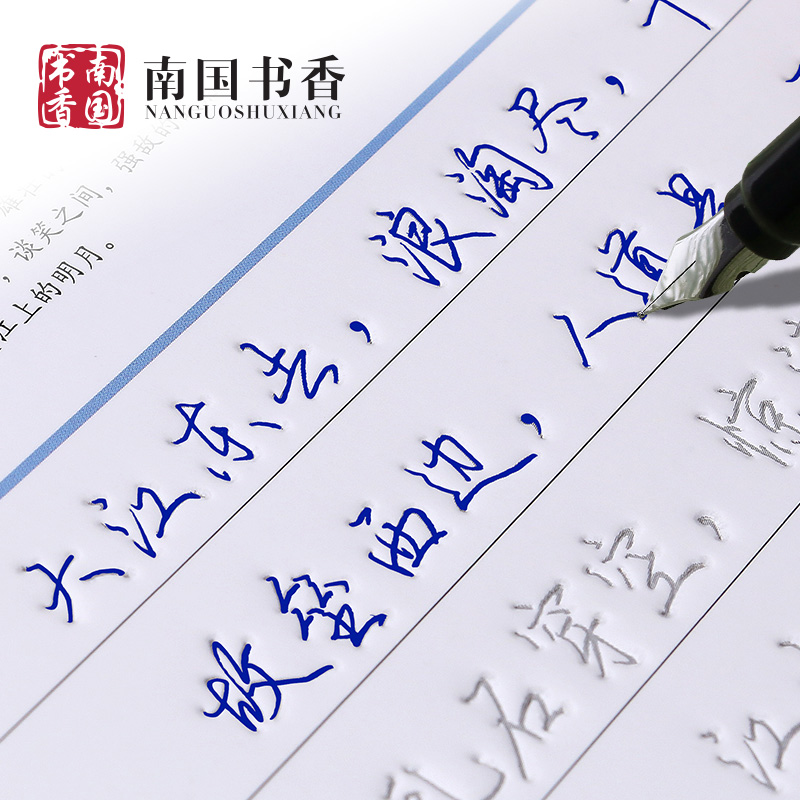 南国
书香
南国书香
NANGUOSHUXIANG
，谈笑之间，强敌的
江上的明月。
大江东去，浪淘尽，
故垒西边，人道是
乱石穿空，惊
江